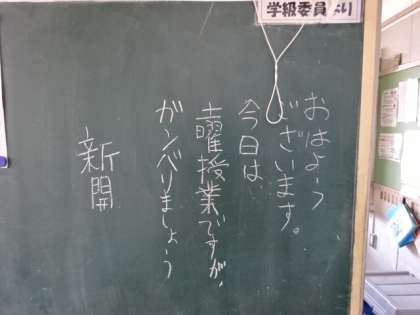 学級委員より
おはよう
ございます。
今日は
土曜授業ですが、
ガンバりましょう
新開